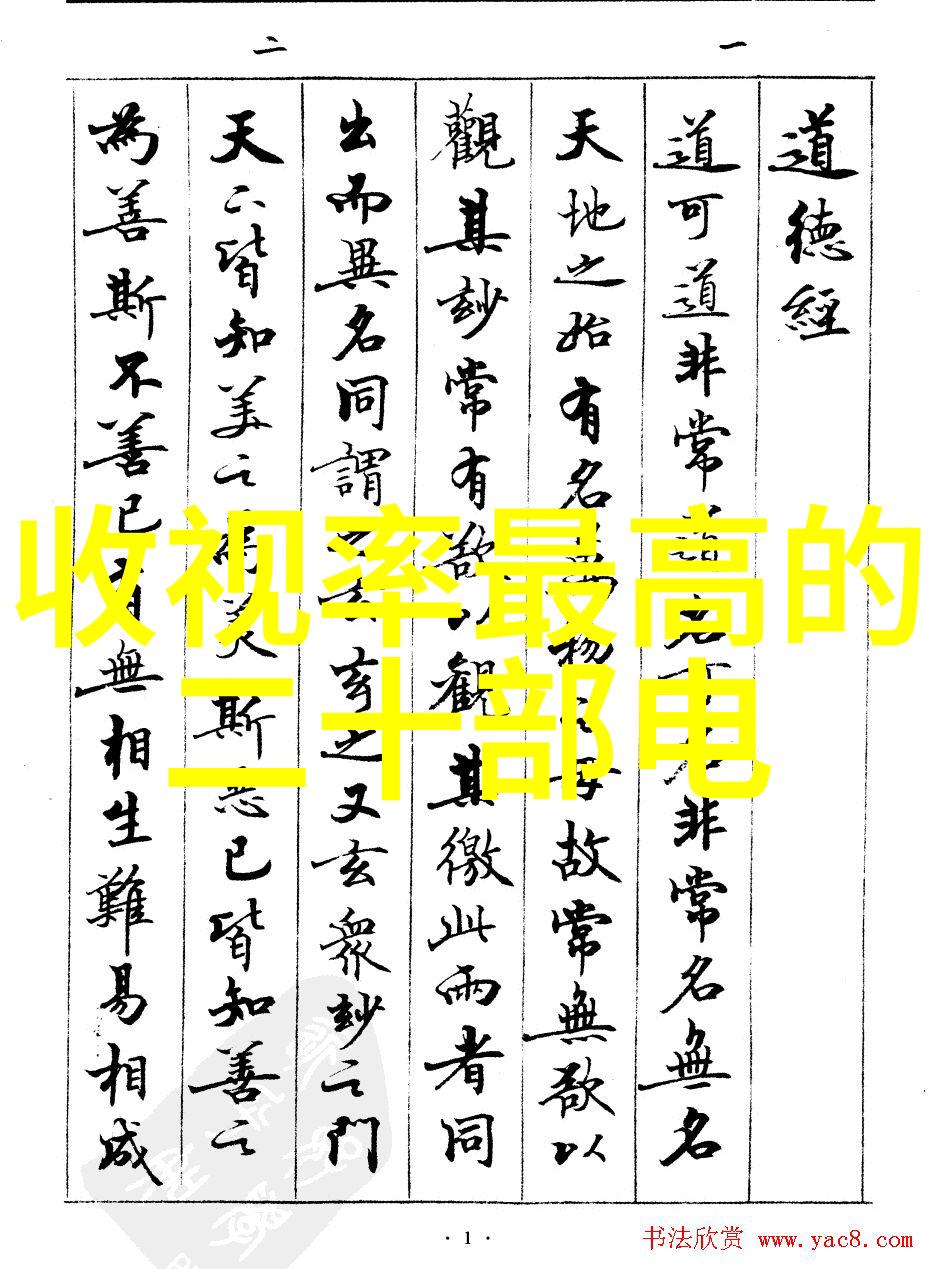 一
二
道德經
道可道非常道名可名非常名無名
天地之始有名萬物之母故常無欲以
觀其玅常有欲以觀其徼此兩者同
出而異名同謂之玄玄之又玄衆玅之門
天下皆知美之為美斯惡已皆知善之
為善斯不善已有無相生難易相成
收视率最高的
二十部电
· 1 ·
书法欣赏 www.yac8.com